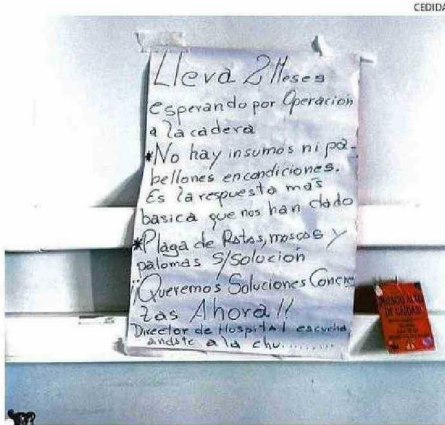 CEDIDA
Lleva 2 Meses
esperando por Operación
a la cadera
*No hay insumos ni pa-
bellones en condiciones.
Es la respuesta más
basica que nos han dado
*Plaga de Ratas, moscas y
palomas S/Solución
¡Queremos Soluciones Concre
tas Ahora!!
Director de Hospital escucha
andate a la chu........
RIESGO ALTO
DE CAIDAS